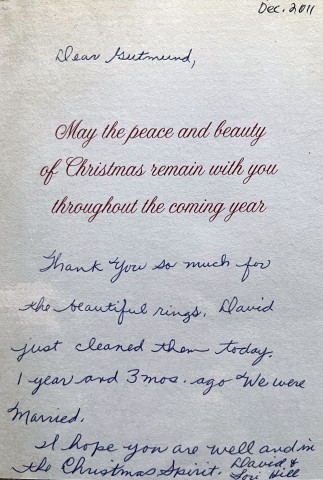 Dec. 2011
Dear Gutmund,
May the peace and beauty
of Christmas remain with you
throughout the coming year
Thank You so much for
the beautiful rings. David
just cleaned them today.
1 year and 3 mos. ago We were
Married.
I hope you are well and in
the Christmas Spirit. David &
Lori Hill